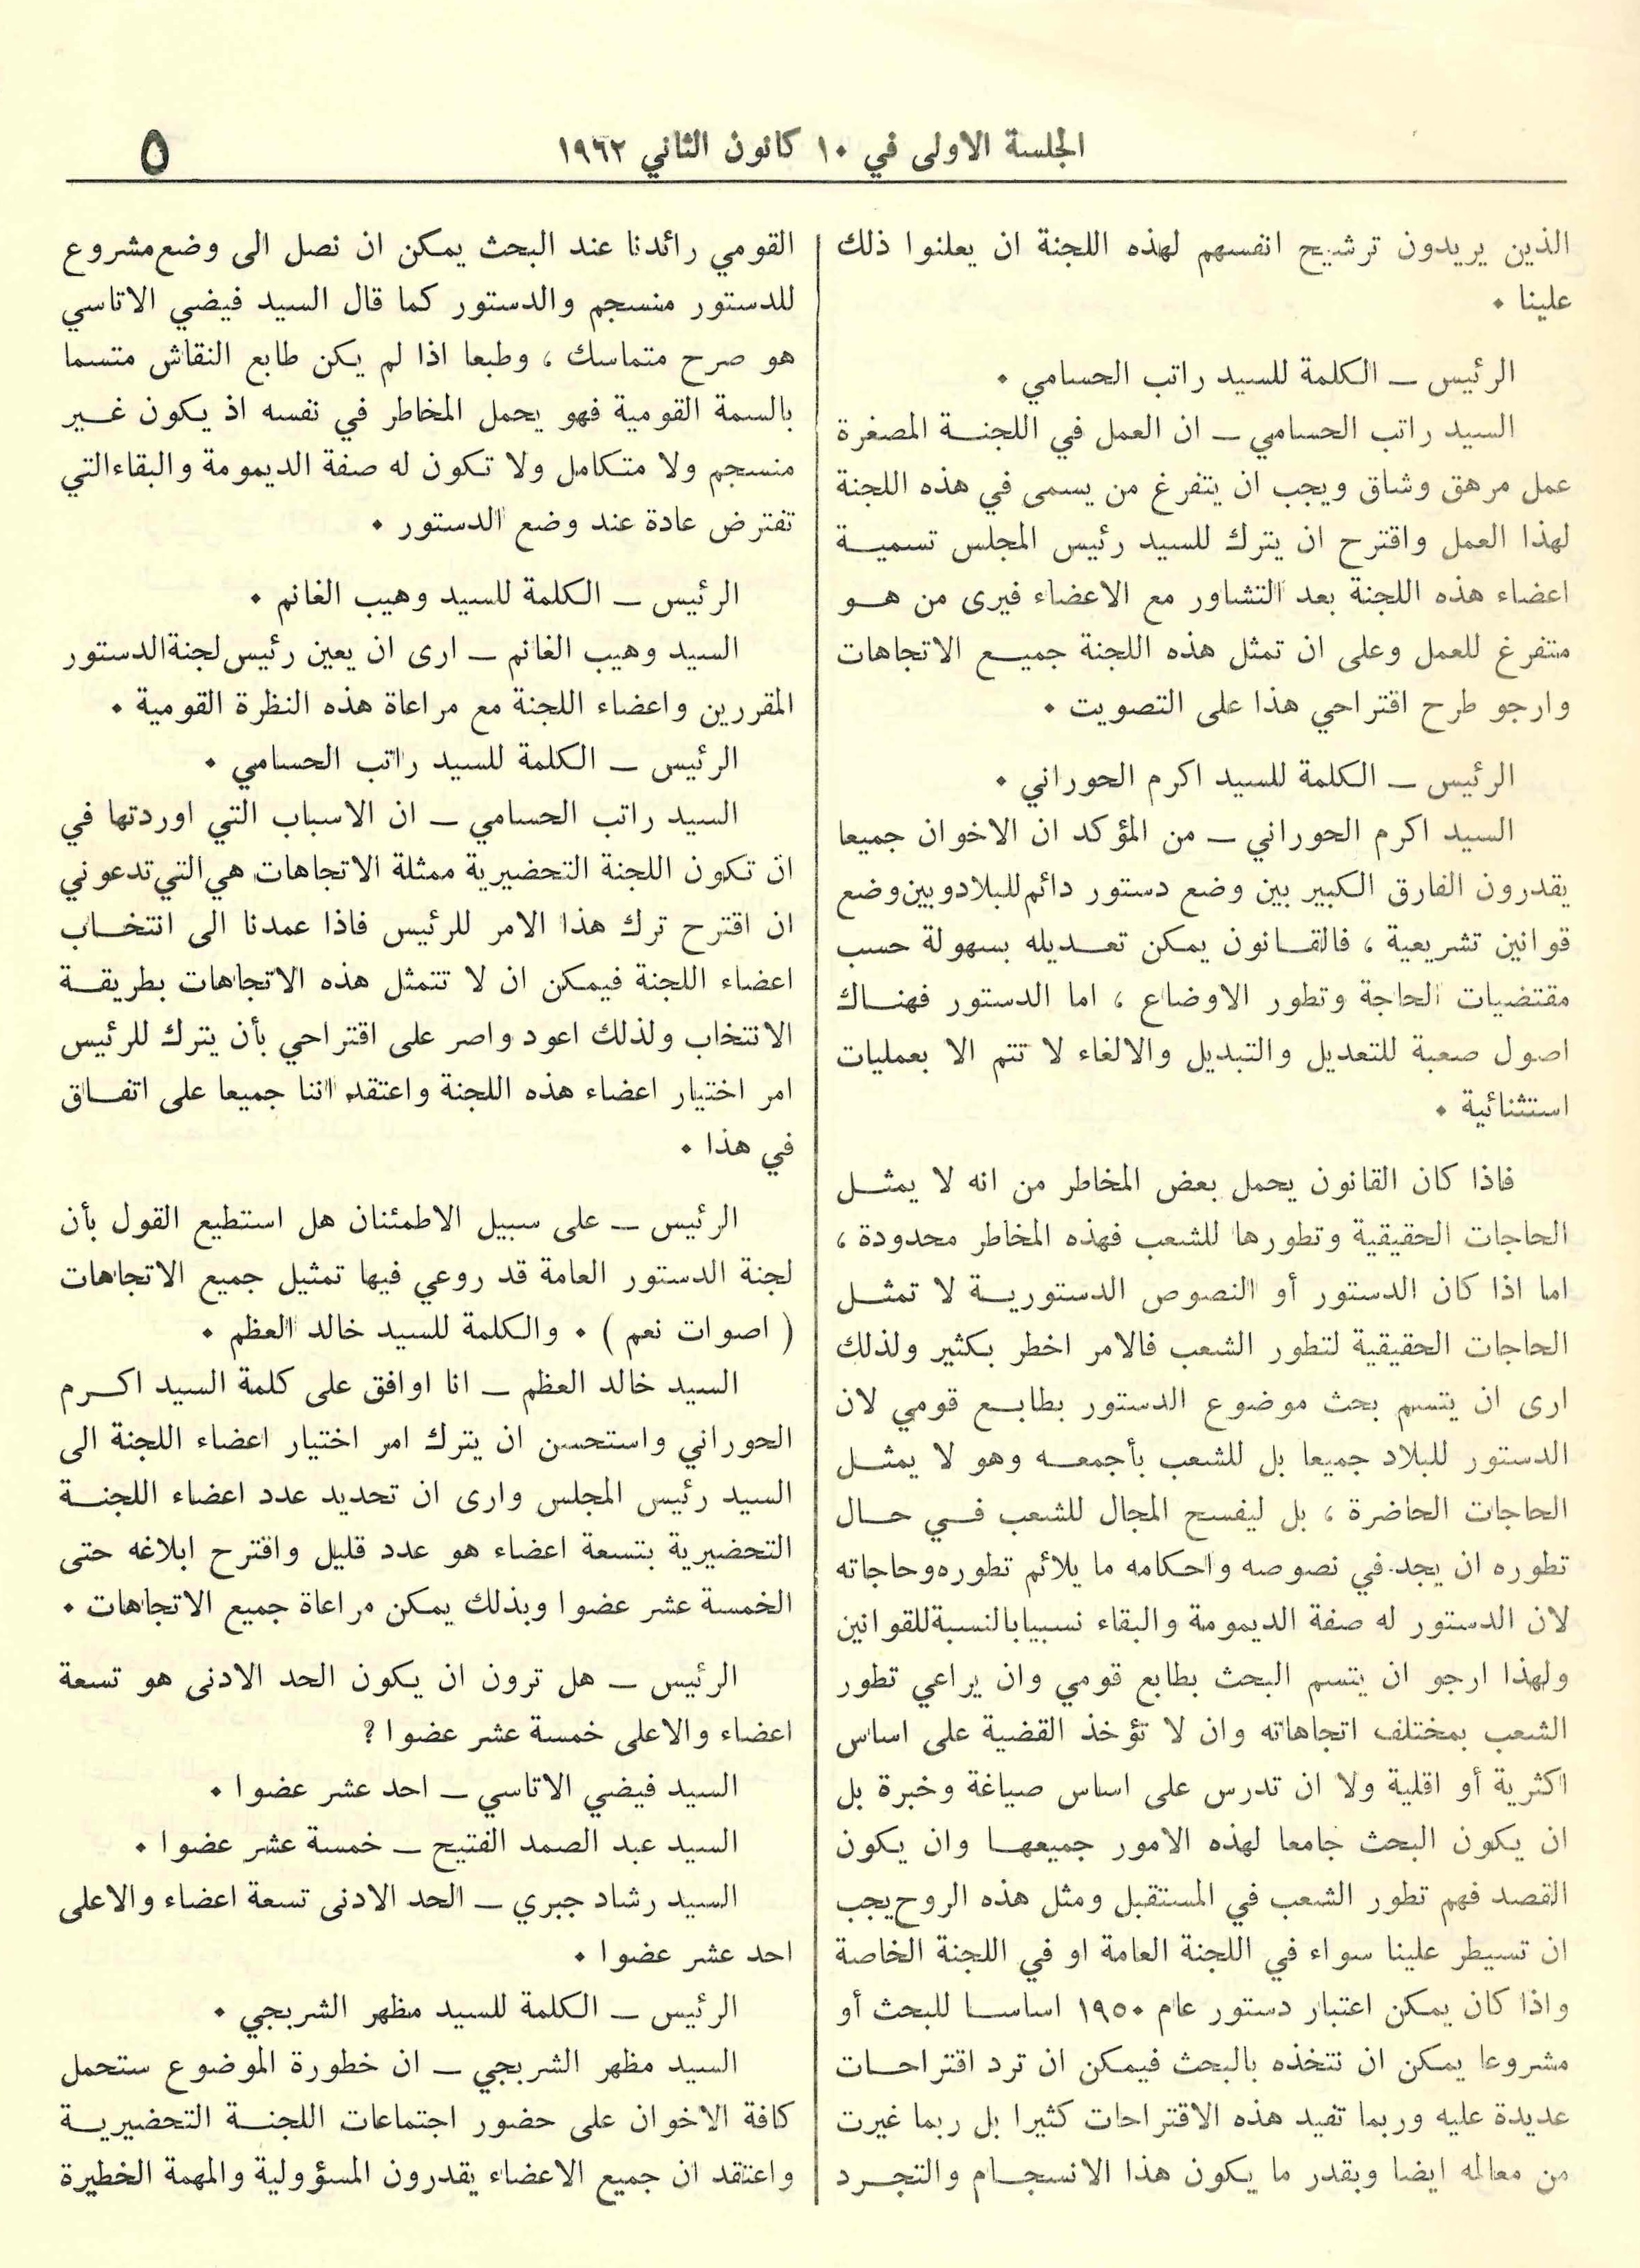 الجلسة الاولى في ١٠ كانون الثاني ١٩٦٢
٥
الذين يريدون ترشيح انفسهم لهذه اللجنة ان يعلنوا ذلك
علينا ٠
الرئيس ـ الكلمة للسيد راتب الحسامي ٠
السيد راتب الحسامي ـ ان العمل في اللجنـة المصغرة
عمل مرهق وشاق ويجب ان يتفرغ من يسمى في هذه اللجنة
لهذا العمل واقترح ان يترك للسيد رئيس المجلس تسميـة
اعضاء هذه اللجنة بعد التشاور مع الاعضاء فيرى من هـو
متفرغ للعمل وعلى ان تمثل هذه اللجنة جميـع الاتجاهات
وارجو طرح اقتراحي هذا على التصويت ٠
الرئيس ـ الكلمة للسيد اكرم الحوراني ٠
السيد اكرم الحوراني ـ من المؤكد ان الاخوان جميعا
يقدرون الفارق الكبير بين وضع دستور دائم للبلاد وبين وضع
قوانين تشريعية ، فالقـانون يمكن تعـديله بسهولة حسب
مقتضيات الحاجة وتطور الاوضاع ، اما الدستور فهنـاك
اصول صعبة للتعديل والتبديل والالغاء لا تتم الا بعمليات
استثنائية ٠
فاذا كان القانون يحمل بعض المخاطر من انه لا يمثـل
الحاجات الحقيقية وتطورها للشعب فهذه المخاطر محدودة ،
اما اذا كان الدستور أو النصوص الدستوريـة لا تمثـل
الحاجات الحقيقية لتطور الشعب فالامر اخطر بكثير ولذلك
ارى ان يتسم بحث موضوع الدستور بطابـع قومي لان
الدستور للبلاد جميعا بل للشعب بأجمعـه وهو لا يمثـل
الحاجات الحاضرة ، بل ليفسح المجال للشعب فـي حـال
تطوره ان يجد في نصوصه واحكامه ما يلائم تطوره وحاجاته
لان الدستور له صفة الديمومة والبقاء نسبيا بالنسبة للقوانين
ولهذا ارجو ان يتسم البحث بطابع قومي وان يراعي تطور
الشعب بمختلف اتجاهاته وان لا تؤخذ القضية على اساس
اكثرية أو اقلية ولا ان تدرس على اساس صياغة وخبرة بل
ان يكون البحث جامعا لهذه الامور جميعهـا وان يكون
القصد فهم تطور الشعب في المستقبل ومثل هذه الروح يجب
ان تسيطر علينا سواء في اللجنة العامة او في اللجنة الخاصة
واذا كان يمكن اعتبار دستور عام ١٩٥٠ اساسـا للبحث أو
مشروعا يمكن ان نتخذه بالبحث فيمكن ان ترد اقتراحـات
عديدة عليه وربما تفيد هذه الاقتراحات كثيرا بل ربما غيرت
من معالمه ايضا وبقدر ما يكون هذا الانسجـام والتجـرد
القومي رائدنا عند البحث يمكن ان نصل الى وضع مشروع
للدستور منسجم والدستور كما قال السيد فيضي الاتاسي
هو صرح متماسك ، وطبعا اذا لم يكن طابع النقاش متسما
بالسمة القومية فهو يحمل المخاطر في نفسه اذ يكون غـير
منسجم ولا متكامل ولا تكون له صفة الديمومة والبقاء التي
تفترض عادة عند وضع الدستور ٠
الرئيس ـ الكلمة للسيد وهيب الغانم ٠
السيد وهيب الغانم ـ ارى ان يعين رئيس لجنة الدستور
المقررين واعضاء اللجنة مع مراعاة هذه النظرة القومية ٠
الرئيس ـ الكلمة للسيد راتب الحسامي ٠
السيد راتب الحسامي ـ ان الاسباب التي اوردتها في
ان تكون اللجنة التحضيرية ممثلة الاتجاهات هي التي تدعوني
ان اقترح ترك هذا الامر للرئيس فاذا عمدنا الى انتخـاب
اعضاء اللجنة فيمكن ان لا تتمثل هذه الاتجاهات بطريقـة
الانتخاب ولذلك اعود واصر على اقتراحي بأن يترك للرئيس
امر اختيار اعضاء هذه اللجنة واعتقد اننا جميعا على اتفـاق
في هذا ٠
الرئيس ـ على سبيل الاطمئنان هل استطيع القول بأن
لجنة الدستور العامة قد روعي فيها تمثيل جميع الاتجاهات
( اصوات نعم ) ٠ والكلمة للسيد خالد العظم ٠
السيد خالد العظم ـ انا اوافق على كلمة السيد اكـرم
الحوراني واستحسن ان يترك امر اختيار اعضاء اللجنة الى
السيد رئيس المجلس وارى ان تحديد عدد اعضاء اللجنـة
التحضيرية بتسعة اعضاء هو عدد قليل واقترح ابلاغه حتى
الخمسة عشر عضوا وبذلك يمكن مراعاة جميع الاتجاهات ٠
الرئيس ـ هل ترون ان يكون الحد الادنى هو تسعة
اعضاء والاعلى خمسة عشر عضوا ؟
السيد فيضي الاتاسي ـ احد عشر عضوا ٠
السيد عبد الصمد الفتيح ـ خمسة عشر عضوا ٠
السيد رشاد جبري ـ الحد الادنى تسعة اعضاء والاعلى
احد عشر عضوا ٠
الرئيس ـ الكلمة للسيد مظهر الشربجي ٠
السيد مظهر الشربجي ـ ان خطورة الموضوع ستحمل
كافة الاخوان على حضور اجتماعات اللجنـة التحضيريـة
واعتقد ان جميع الاعضاء يقدرون المسؤولية والمهمة الخطيرة